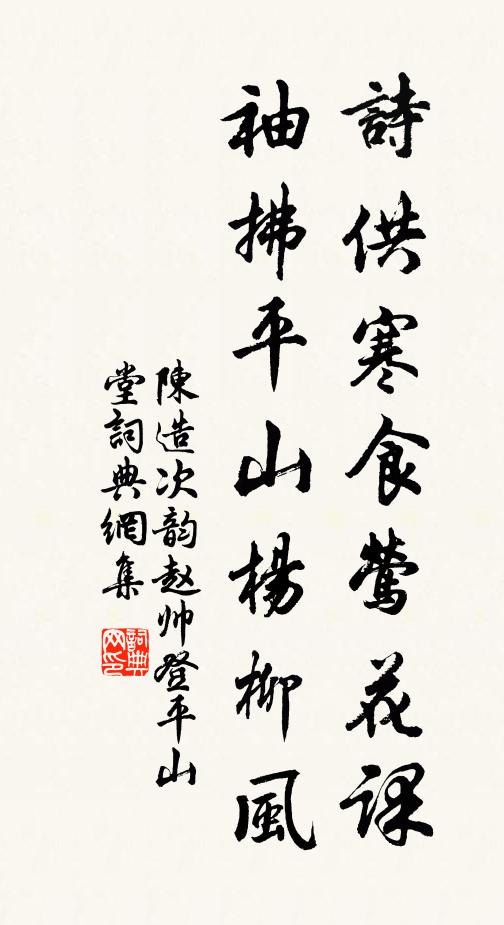 詩供寒食鶯花課
袖拂平山楊柳風
陳造次韵赵帅登平山
堂詞典網集
詞典
网印